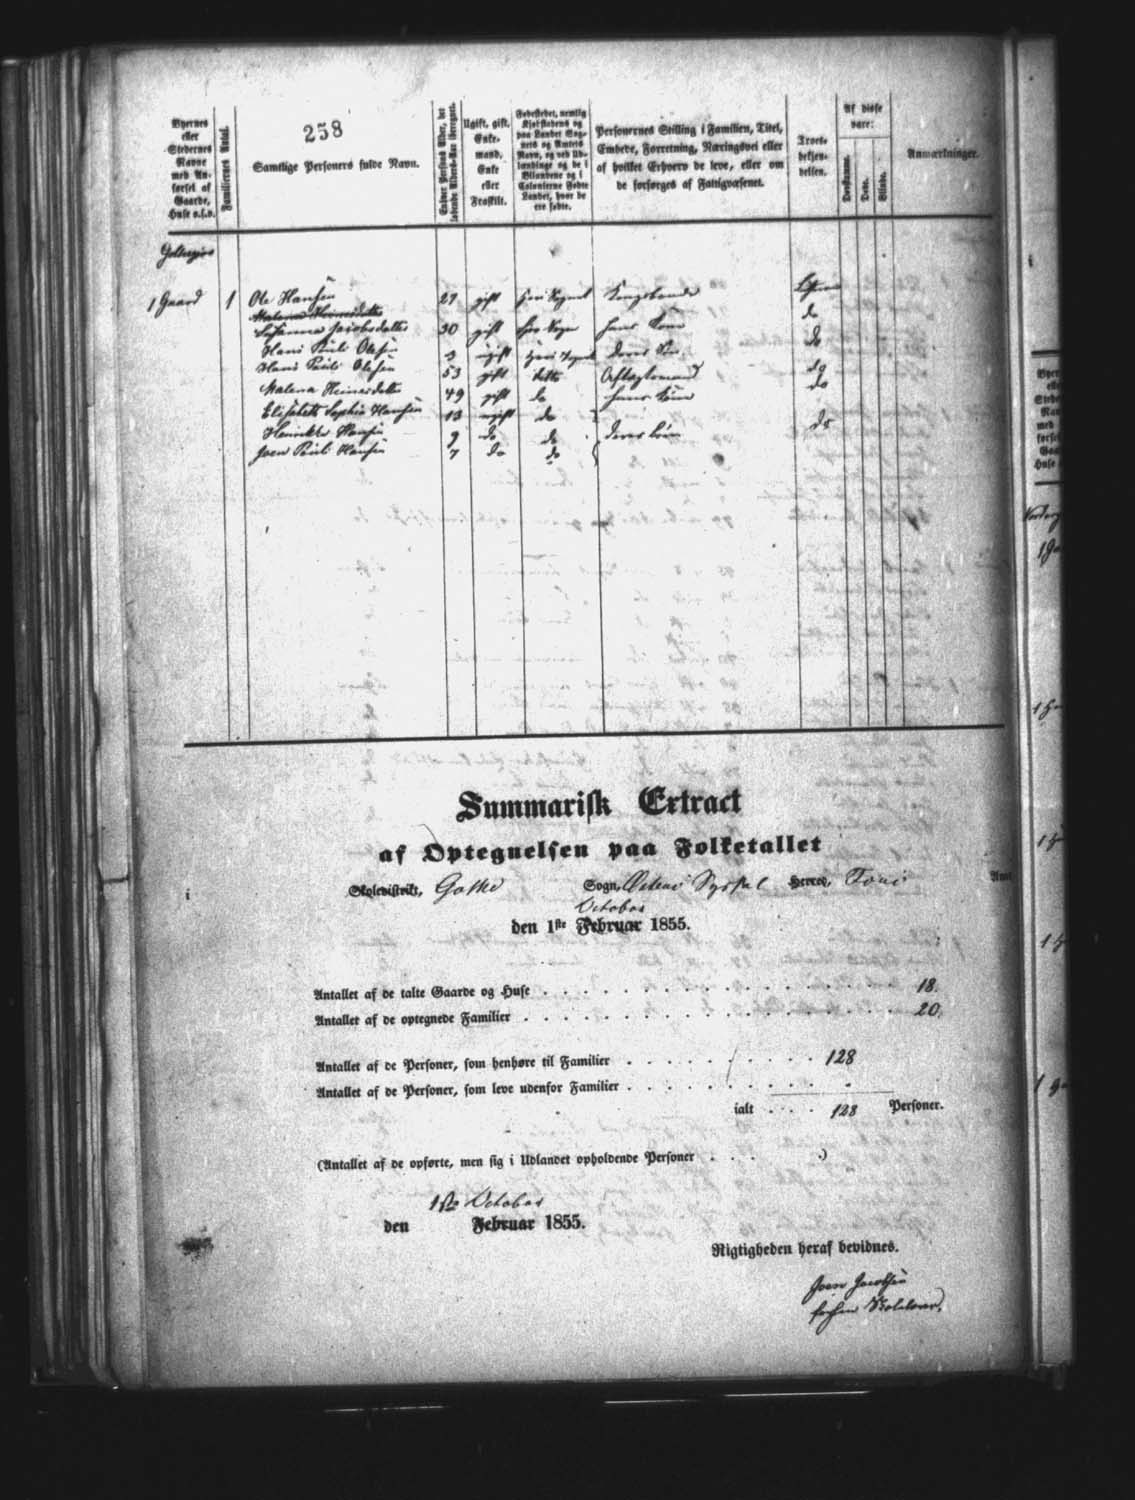 258
Byernes eller Stedernes Navne med Anførsel af Gaarde, Huse o.s.v.
Familiernes Antal.
Samtlige Personers fulde Navn.
Enhver Persons Alder, det løbende Alders-Aar iberegnet.
Ugift, gift, Enkemand, Enke eller Fraskilt.
Fødestedet, nemlig Kjøbstadens og paa Landet Sognets og Amtets Navn, og ved Udlændinge og de i Bilandene og i Colonierne Fødte Landet, hvor de ere fødte.
Personernes Stilling i Familien, Titel, Embede, Forretning, Næringsvei eller af hvilket Erhverv de leve, eller om de forsørges af Fattigvæsenet.
Troesbekjendelsen.
Af disse vare:
Døvstumme.
Døve.
Blinde.
Anmærkninger.
1 Gaard 1 Ole Hansen 29 gift Kongsbonde
Malena Heinesdatter
Susanna Jacobsdatter 30 gift hans Kone do
Hans Pauli Olesen 3 ugift deres Søn do
Hans Pauli Olesen 53 gift Aftægtsmand do
Malena Heinesdatter 49 gift do hans Kone do
Elisabeth Sophia Hansen 13 ugift do
Hansen 9 do do deres børn do
Joen Pauli Hansen 7 do do
Summarisk Extract
af Optegnelsen paa Folketallet
i Skoledistrikt, Gothe Sogn, Østerø Syssel Herred, Færø Amt
October
den 1ste Februar 1855.
Antallet af de talte Gaarde og Huse 18.
Antallet af de optegnede Familier 20.
Antallet af de Personer, som henhøre til Familier 128
Antallet af de Personer, som leve udenfor Familier
ialt 128 Personer.
(Antallet af de opførte, men sig i Udlandet opholdende Personer )
1ste October
den Februar 1855.
Rigtigheden heraf bevidnes.
Joen Jacobsen